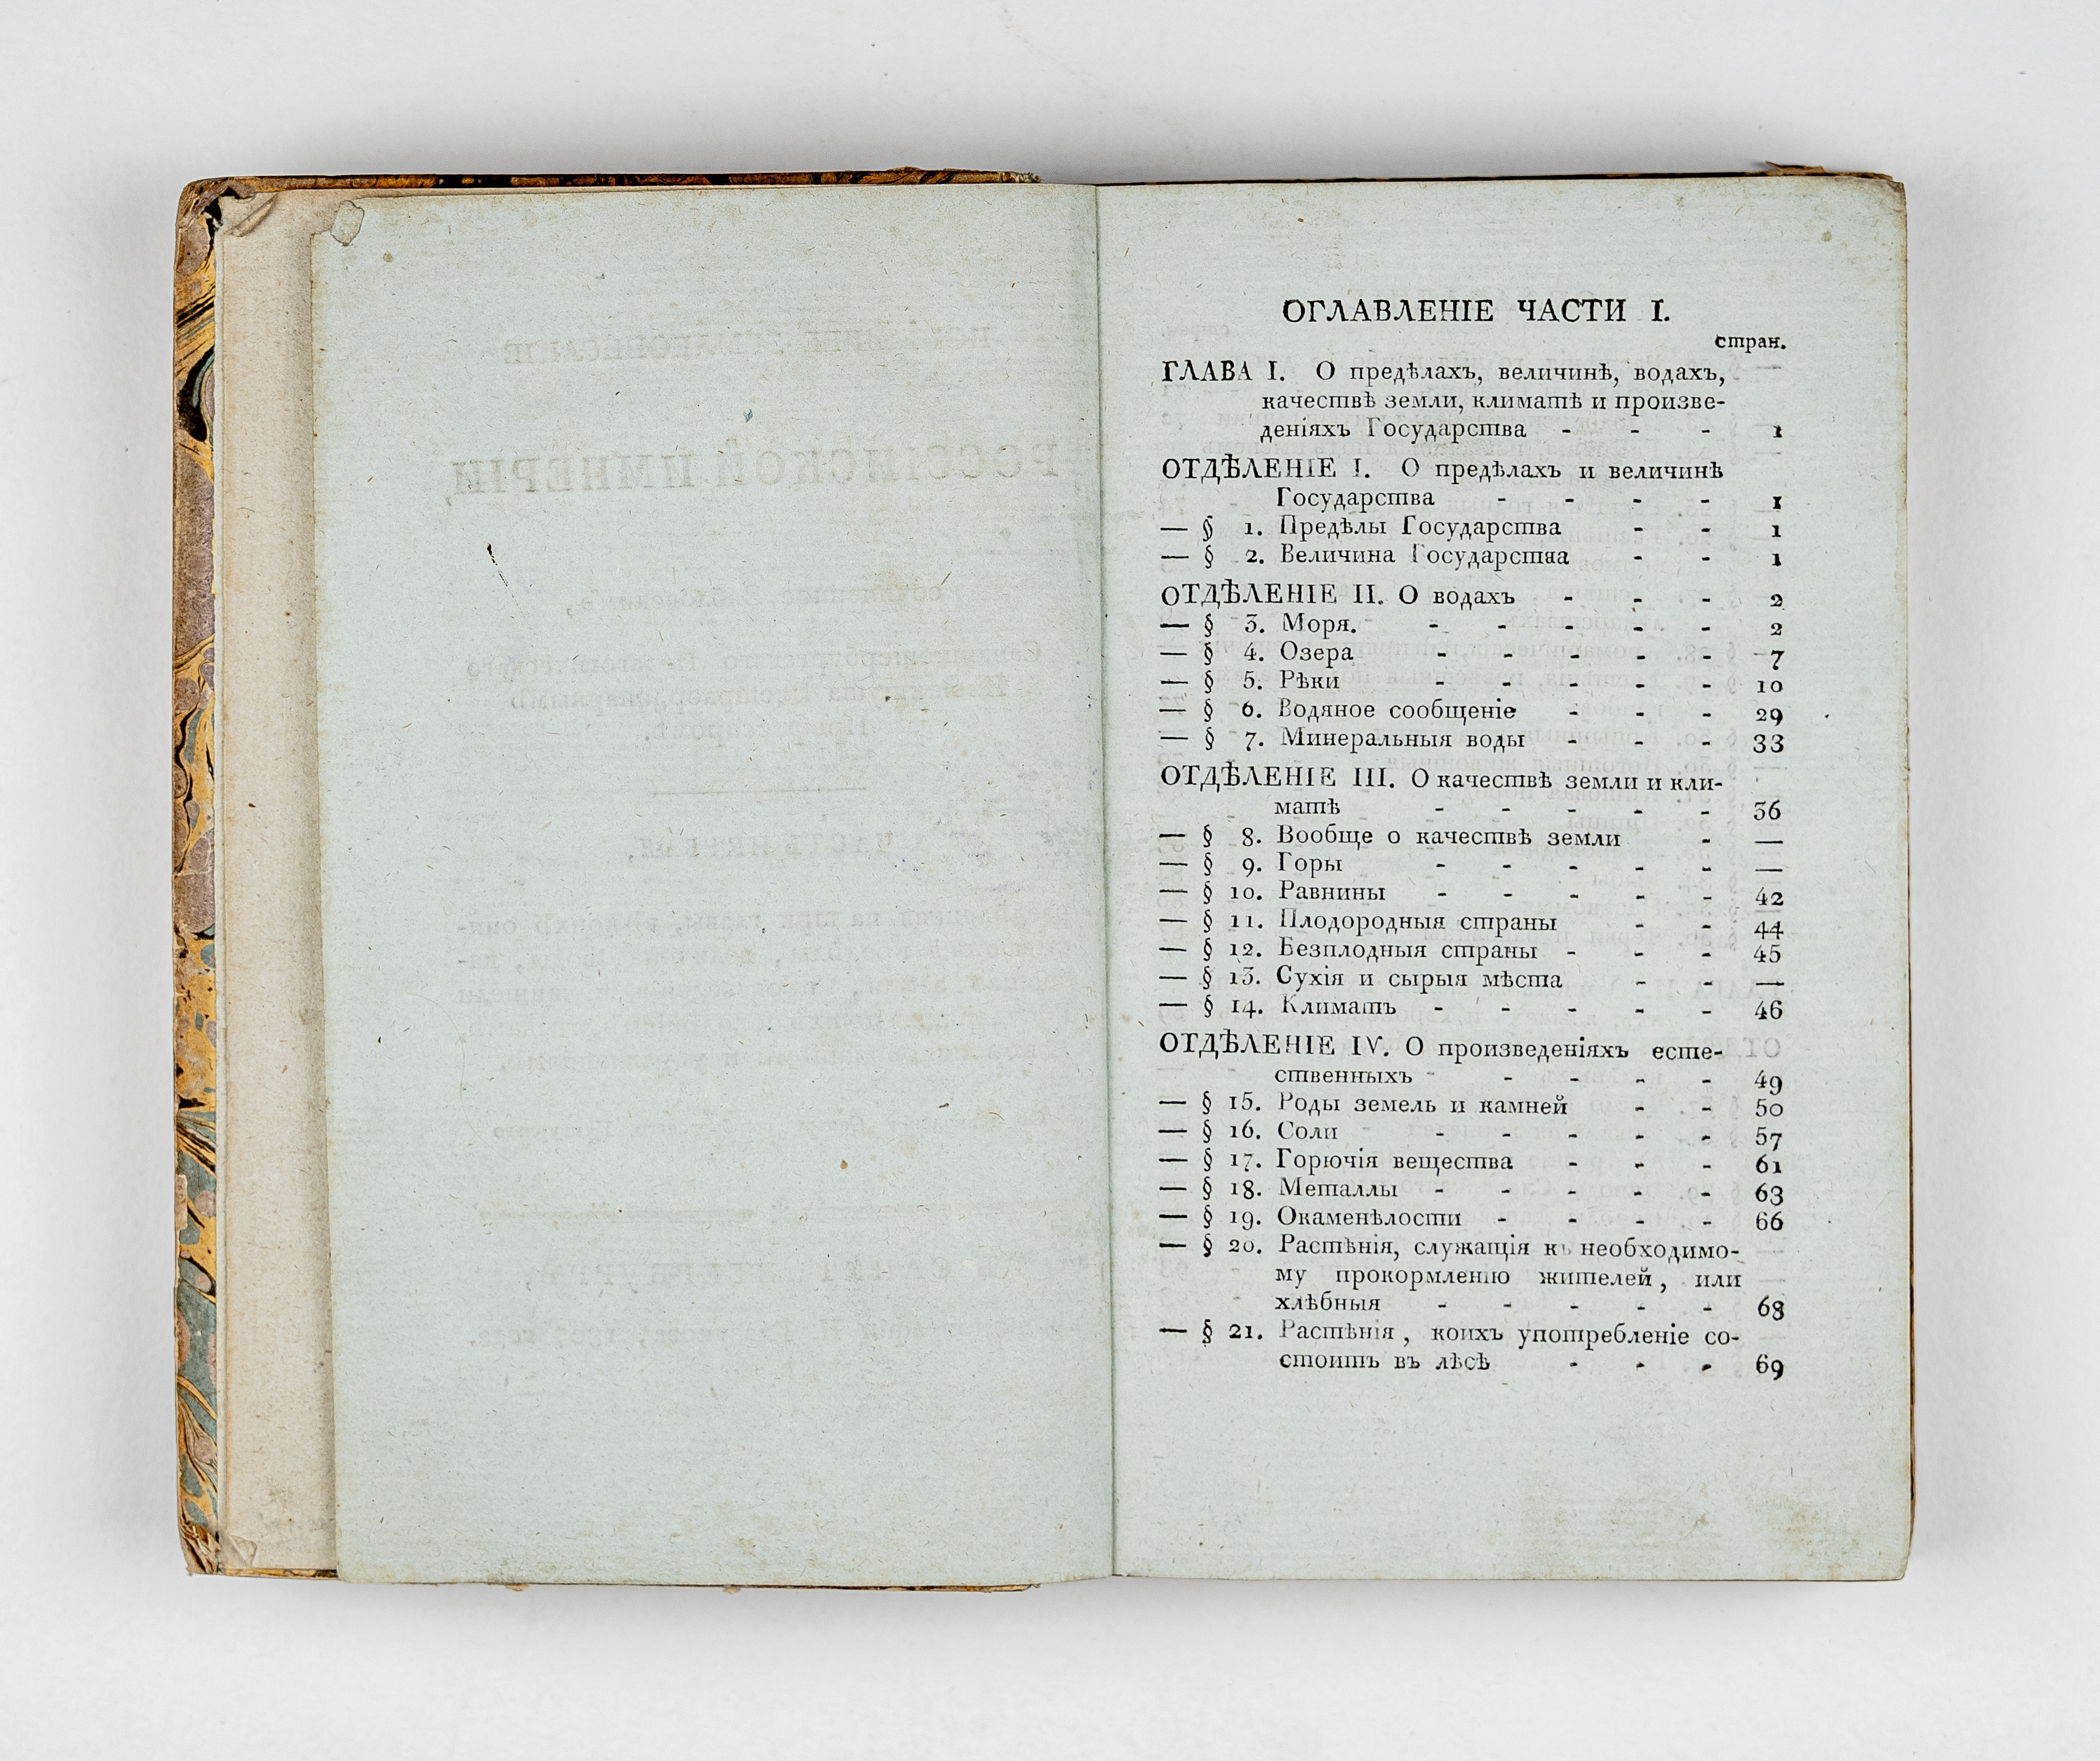 ОГЛАВЛЕНІЕ ЧАСТИ I.
стран.
ГЛАВА I. О предѣлахъ, величинѣ, водахъ,
качествѣ земли, климатѣ и произве-
деніяхъ Государства - - - 1
ОТДѢЛЕНІЕ I. О предѣлахъ и величинѣ
Государства - - - - 1
— § 1. Предѣлы Государства - - 1
— § 2. Величина Государства - - 1
ОТДѢЛЕНІЕ II. О водахъ - - - 2
— § 3. Моря. - - - - - 2
— § 4. Озера - - - - - 7
— § 5. Рѣки - - - - - 10
— § 6. Водяное сообщеніе - - - 29
— § 7. Минеральныя воды - - - 33
ОТДѢЛЕНІЕ III. О качествѣ земли и кли-
матѣ - - - - - 36
— § 8. Вообще о качествѣ земли - —
— § 9. Горы - - - - - —
— § 10. Равнины - - - - - 42
— § 11. Плодородныя страны - - 44
— § 12. Безплодныя страны - - - 45
— § 13. Сухія и сырыя мѣста - - —
— § 14. Климатъ - - - - - 46
ОТДѢЛЕНІЕ IV. О произведеніяхъ есте-
ственныхъ - - - - - 49
— § 15. Роды земель и камней - - 50
— § 16. Соли - - - - - 57
— § 17. Горючія вещества - - - 61
— § 18. Металлы - - - - - 63
— § 19. Окаменѣлости - - - - 66
— § 20. Растѣнія, служащія къ необходимо-
му прокормленію жителей, или
хлѣбныя - - - - - 68
— § 21. Растѣнія, коихъ употребленіе со-
стоитъ въ лѣсѣ - - - 69